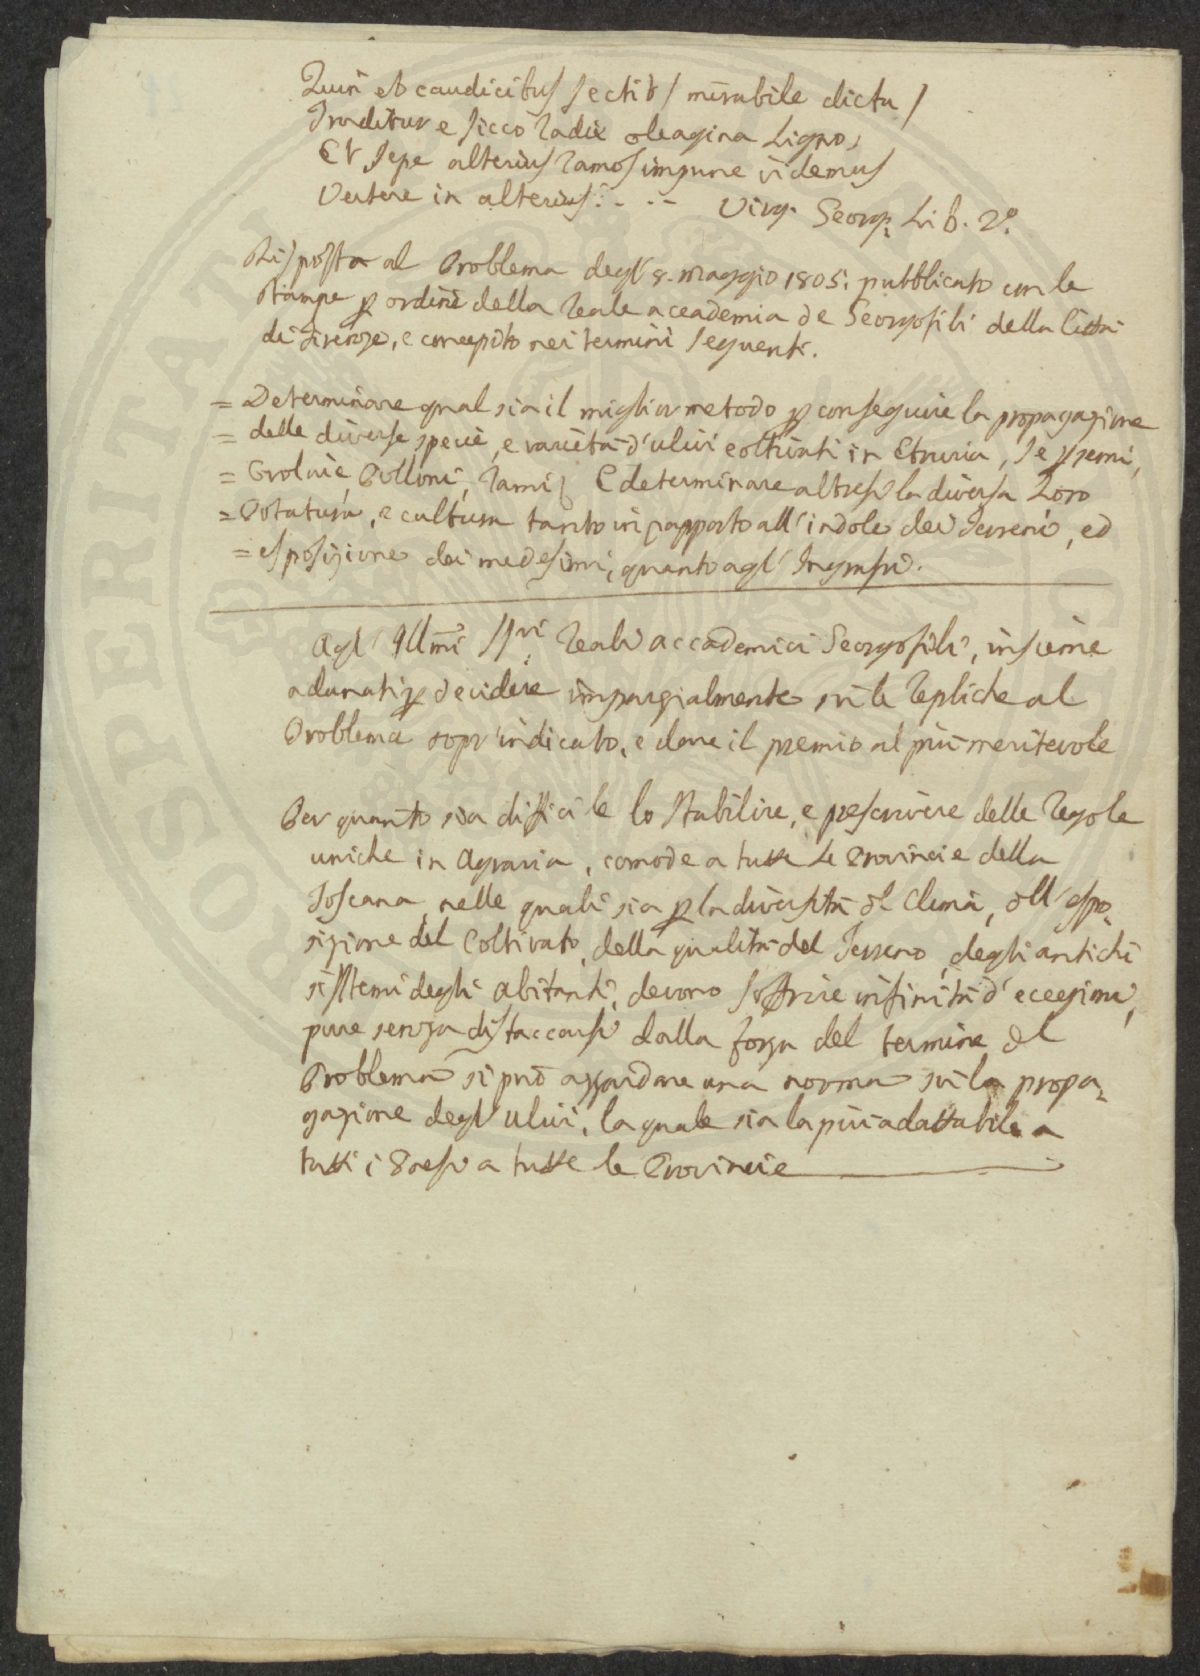 Quin et caudicibus sectis / mirabile dictu /
Traditur e sicco radix oleagina Ligno,
Et sepe alterius ramos impune videmus
Vertere in alterius: - . --    Virg. Georg: Lib. 2°.
Risposta al Problema degl' 8. Maggio 1805. pubblicato con le
stampe p ordine della reale accademia de Georgofili della Città
di Firenze, e concepito nei termini seguenti.
= Determinare qual sia il miglior metodo p conseguire la propagazione
= delle diverse specie, e varietà d'ulivi coltivati in Etruria, se p semi,
= Ovolaie Polloni, rami; E determinare altresì la diversa Loro
= Potatura, e cultura tanto in rapporto all'indole dei Terreni, ed
= esposizione dei medesimi, quanto agl' Ingrassi.
Agl' Illmi SSri reali accademici Georgofili, insieme
adunati p decidere imparzialmente su le repliche al
Problema sopr'indicato, e dare il premio al più meritevole
Per quanto sia difficile lo stabilire, e prescrivere delle regole
uniche in Agraria, comode a tutte Le Provincie della
Toscana, nelle quali sia p la diversità del Clima, dell' espo-
sizione del Coltivato, della qualità del Terreno, degli antichi
sistemi degli abitanti, devono soffrire infinità d'eccezioni,
pure senza distaccarsi dalla forza del termine del
Problema si può azzardare una norma su la propa-
gazione degl' ulivi, la quale sia la più adattabile a
tutti i Paesi a tutte le Provincie